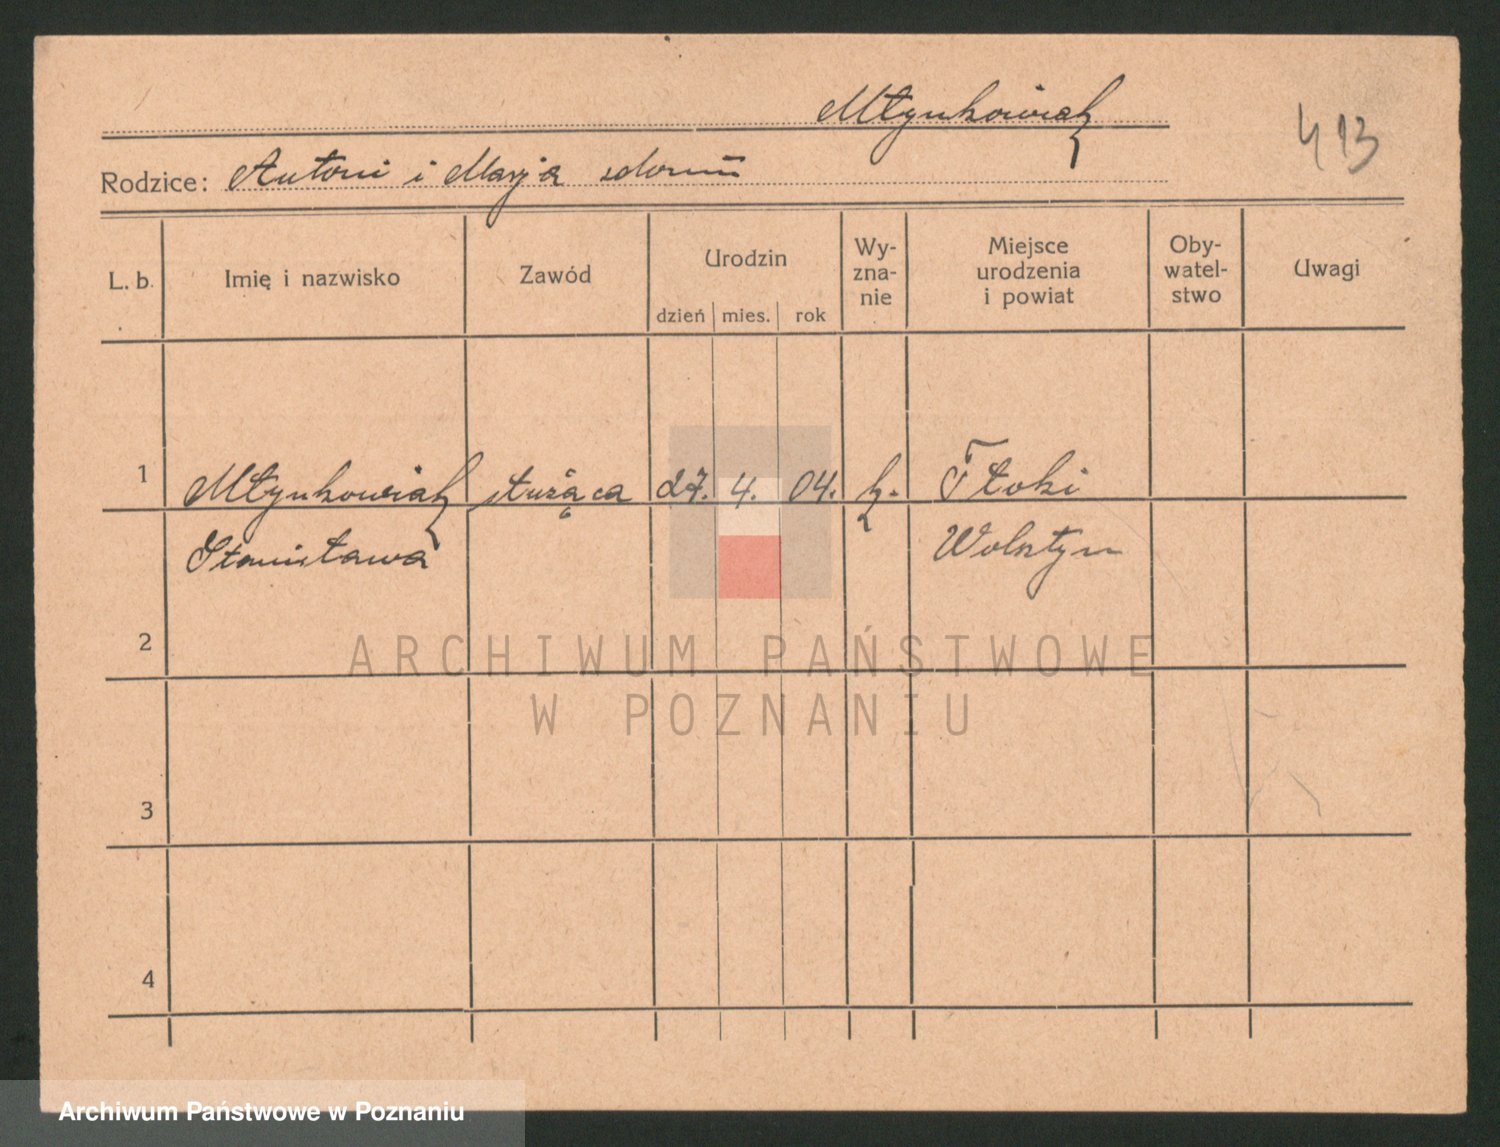 Młynkowiak
413
Rodzice: Antoni i Marja
L. b. Imię i nazwisko Zawód Urodzin dzień mies. rok Wy-zna-nie Miejsce urodzenia i powiat Oby-watel-stwo Uwagi
1 Młynkowiak służąca 27. 4. 04. k. Tłoki
Stanisława Wolsztyn
2
ARCHIWUM PAŃSTWOWE
W POZNANIU
3
4
Archiwum Państwowe w Poznaniu